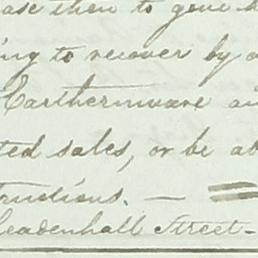 ase then to give h
ing to recover by a
Earthernware an
ted sales, or be at
tructions. — =
Leadenhall Street-